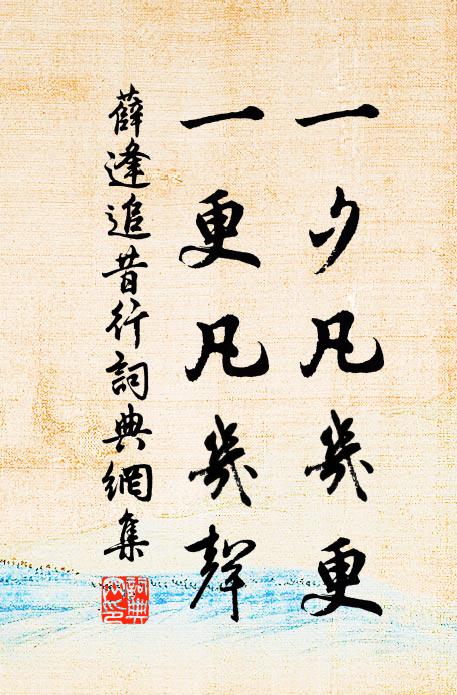 一夕凡幾更
一更凡幾聲
薛逢追昔行詞典網集